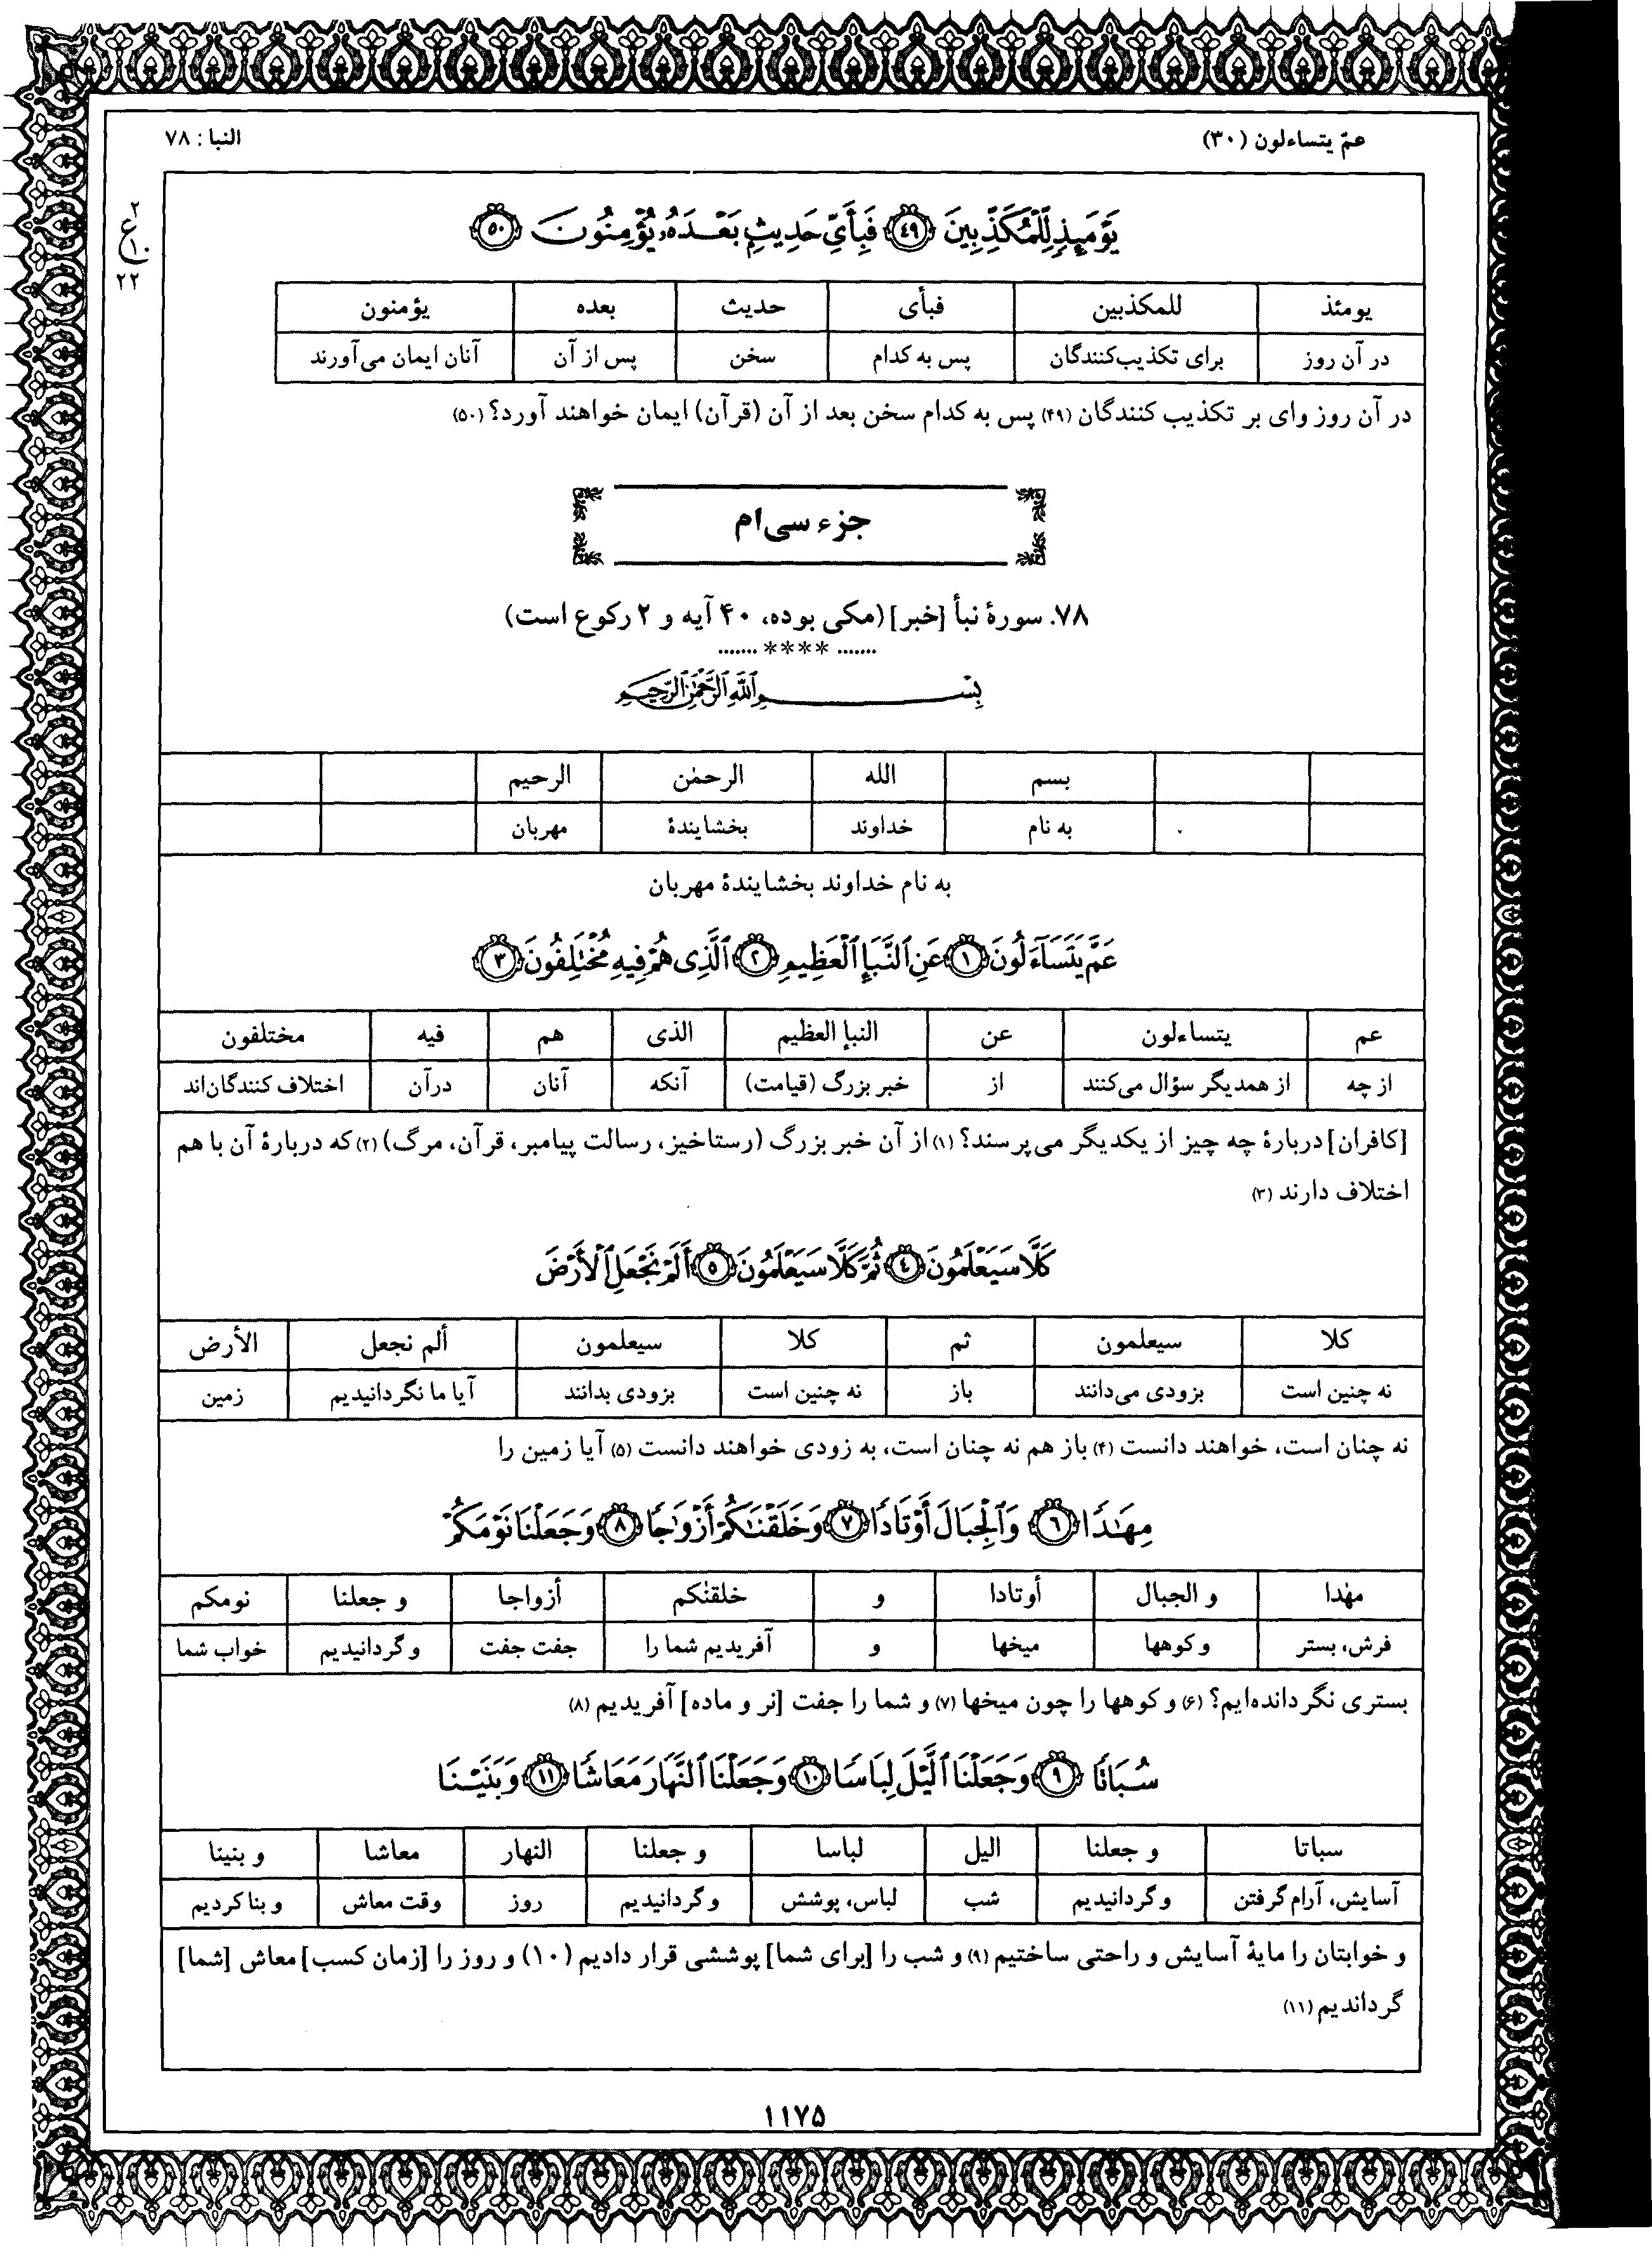 عمّ یتساءلون (۳۰)
النبا : ۷۸
۲
ع
۱۰
۲۲
يَوْمَئِذٍ لِّلْمُكَذِّبِينَ ﴿٤٩﴾ فَبِأَيِّ حَدِيثٍ بَعْدَهُۥ يُؤْمِنُونَ ﴿٥٠﴾
یومئذ للمکذبین فبأی حدیث بعده یؤمنون
در آن روز برای تکذیب‌کنندگان پس به کدام سخن پس از آن آنان ایمان می‌آورند
در آن روز وای بر تکذیب کنندگان (۴۹) پس به کدام سخن بعد از آن (قرآن) ایمان خواهند آورد؟ (۵۰)
جزء سی‌ام
۷۸. سورهٔ نبأ [خبر] (مکی بوده، ۴۰ آیه و ۲ رکوع است)
....... **** .......
بِسْمِ ٱللَّهِ ٱلرَّحْمَٰنِ ٱلرَّحِيمِ
بسم الله الرحمٰن الرحیم
به نام خداوند بخشایندهٔ مهربان
به نام خداوند بخشایندهٔ مهربان
عَمَّ يَتَسَآءَلُونَ ﴿١﴾ عَنِ ٱلنَّبَإِ ٱلْعَظِيمِ ﴿٢﴾ ٱلَّذِى هُمْ فِيهِ مُخْتَلِفُونَ ﴿٣﴾
عم یتساءلون عن النبإ العظیم الذی هم فیه مختلفون
از چه از همدیگر سؤال می‌کنند از خبر بزرگ (قیامت) آنکه آنان درآن اختلاف کنندگان‌اند
[کافران] دربارهٔ چه چیز از یکدیگر می‌پرسند؟ (۱) از آن خبر بزرگ (رستاخیز، رسالت پیامبر، قرآن، مرگ) (۲) که دربارهٔ آن با هم
اختلاف دارند (۳)
كَلَّا سَيَعْلَمُونَ ﴿٤﴾ ثُمَّ كَلَّا سَيَعْلَمُونَ ﴿٥﴾ أَلَمْ نَجْعَلِ ٱلْأَرْضَ
کلا سیعلمون ثم کلا سیعلمون ألم نجعل الأرض
نه چنین است بزودی می‌دانند باز نه چنین است بزودی بدانند آیا ما نگردانیدیم زمین
نه چنان است، خواهند دانست (۴) باز هم نه چنان است، به زودی خواهند دانست (۵) آیا زمین را
مِهَٰدًا ﴿٦﴾ وَٱلْجِبَالَ أَوْتَادًا ﴿٧﴾ وَخَلَقْنَٰكُمْ أَزْوَٰجًا ﴿٨﴾ وَجَعَلْنَا نَوْمَكُمْ
مهٰدا و الجبال أوتادا و خلقنٰکم أزواجا و جعلنا نومکم
فرش، بستر و کوهها میخها و آفریدیم شما را جفت جفت و گردانیدیم خواب شما
بستری نگردانده‌ایم؟ (۶) و کوهها را چون میخها (۷) و شما را جفت [نر و ماده] آفریدیم (۸)
سُبَاتًا ﴿٩﴾ وَجَعَلْنَا ٱلَّيْلَ لِبَاسًا ﴿١٠﴾ وَجَعَلْنَا ٱلنَّهَارَ مَعَاشًا ﴿١١﴾ وَبَنَيْنَا
سباتا و جعلنا الیل لباسا و جعلنا النهار معاشا و بنینا
آسایش، آرام گرفتن و گردانیدیم شب لباس، پوشش و گردانیدیم روز وقت معاش و بنا کردیم
و خوابتان را مایهٔ آسایش و راحتی ساختیم (۹) و شب را [برای شما] پوششی قرار دادیم (۱۰) و روز را [زمان کسب] معاش [شما]
گرداندیم (۱۱)
۱۱۷۵